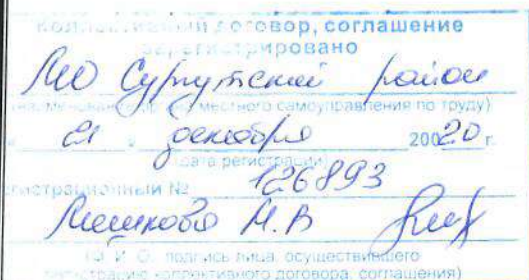 Коллективный договор, соглашение
зарегистрировано
МО Сургутский район
(наименование органа местного самоуправления по труду)
« 21 » декабря 20020 г.
(дата регистрации)
регистрационный № 126893
Мешкова Н.В
(Ф. И. О. подпись лица, осуществившего
регистрацию коллективного договора, соглашения)